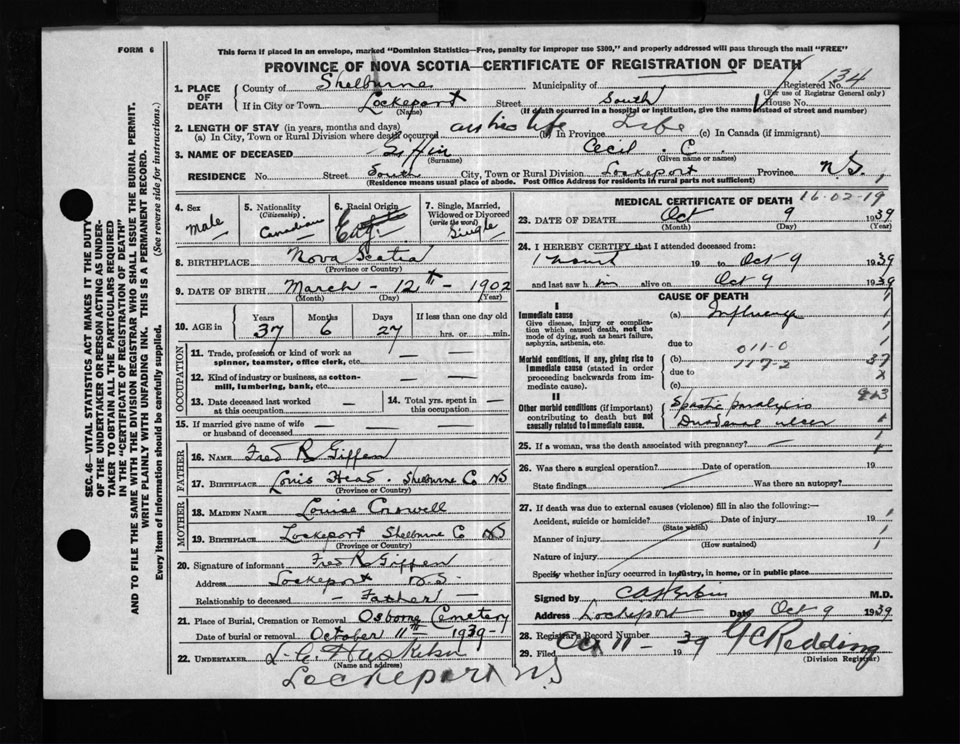 FORM 6
This form if placed in an envelope, marked "Dominion Statistics—Free, penalty for improper use $300," and properly addressed will pass through the mail "FREE"
PROVINCE OF NOVA SCOTIA—CERTIFICATE OF REGISTRATION OF DEATH
1. PLACE OF DEATH County of Shelburne Municipality of Registered No. 34
(For use of Registrar General only)
If in City or Town Lockeport Street South House No.
(Name) (If death occurred in a hospital or institution, give the name instead of street and number)
2. LENGTH OF STAY (in years, months and days)
(a) In City, Town or Rural Division where death occurred all his life (b) In Province Life (c) In Canada (if immigrant)
3. NAME OF DECEASED Cecil . C .
(Surname) (Given name or names)
RESIDENCE No. Street South City, Town or Rural Division Lockeport Province N.S.
(Residence means usual place of abode. Post Office Address for residents in rural parts not sufficient)
4. Sex Male
5. Nationality (Citizenship) Canadian
6. Racial Origin
7. Single, Married, Widowed or Divorced (write the word) Single
8. BIRTHPLACE Nova Scotia
(Province or Country)
9. DATE OF BIRTH March - 12th - 1902
(Month) (Day) (Year)
10. AGE in Years Months Days If less than one day old
37 6 27 hrs. or min.
OCCUPATION
11. Trade, profession or kind of work as spinner, teamster, office clerk, etc. — —
12. Kind of industry or business, as cotton-mill, lumbering, bank, etc. — —
13. Date deceased last worked at this occupation —
14. Total yrs. spent in this occupation —
15. If married give name of wife or husband of deceased — —
FATHER
16. NAME Fred R Giffen
17. BIRTHPLACE Louis Head . Shelburne Co NS
(Province or Country)
MOTHER
18. MAIDEN NAME Louise Crowell
19. BIRTHPLACE Lockeport Shelburne Co NS
(Province or Country)
20. Signature of informant Fred R Giffen
Address Lockeport N.S.
Relationship to deceased - Father -
21. Place of Burial, Cremation or Removal Osborne Cemetery
Date of burial or removal October 11th - 1939 -
22. UNDERTAKER
(Name and address)
Lockeport NS
MEDICAL CERTIFICATE OF DEATH 16-02-19
23. DATE OF DEATH Oct 9 1939
(Month) (Day) (Year)
24. I HEREBY CERTIFY that I attended deceased from:
1 month 19 to Oct 9 1939
and last saw h im alive on Oct 9 1939
CAUSE OF DEATH
I
Immediate cause
Give disease, injury or complication which caused death, not the mode of dying, such as heart failure, asphyxia, asthenia, etc.
(a) Influenza
due to
Morbid conditions, if any, giving rise to immediate cause (stated in order proceeding backwards from immediate cause).
011-0
(b) 117-2 37
due to x
(c)
II
Other morbid conditions (if important) contributing to death but not causally related to immediate cause.
Spastic paralysis
Duodenal ulcer
25. If a woman, was the death associated with pregnancy? —
26. Was there a surgical operation? Date of operation 19
State findings Was there an autopsy?
27. If death was due to external causes (violence) fill in also the following:—
Accident, suicide or homicide? Date of injury 19
(State which)
Manner of injury
(How sustained)
Nature of injury
Specify whether injury occurred in industry, in home, or in public place
Signed by M.D.
Address Lockeport Date Oct 9 1939
28. Registrar's Record Number
29. Filed Oct 11 - 1939 G C Redding
(Division Registrar)
SEC. 46—VITAL STATISTICS ACT MAKES IT THE DUTY OF THE UNDERTAKER OR PERSON ACTING AS UNDERTAKER TO OBTAIN ALL THE PARTICULARS REQUIRED IN THE "CERTIFICATE OF REGISTRATION OF DEATH" AND TO FILE THE SAME WITH THE DIVISION REGISTRAR WHO SHALL ISSUE THE BURIAL PERMIT.
WRITE PLAINLY WITH UNFADING INK. THIS IS A PERMANENT RECORD.
Every item of information should be carefully supplied. (See reverse side for instructions.)